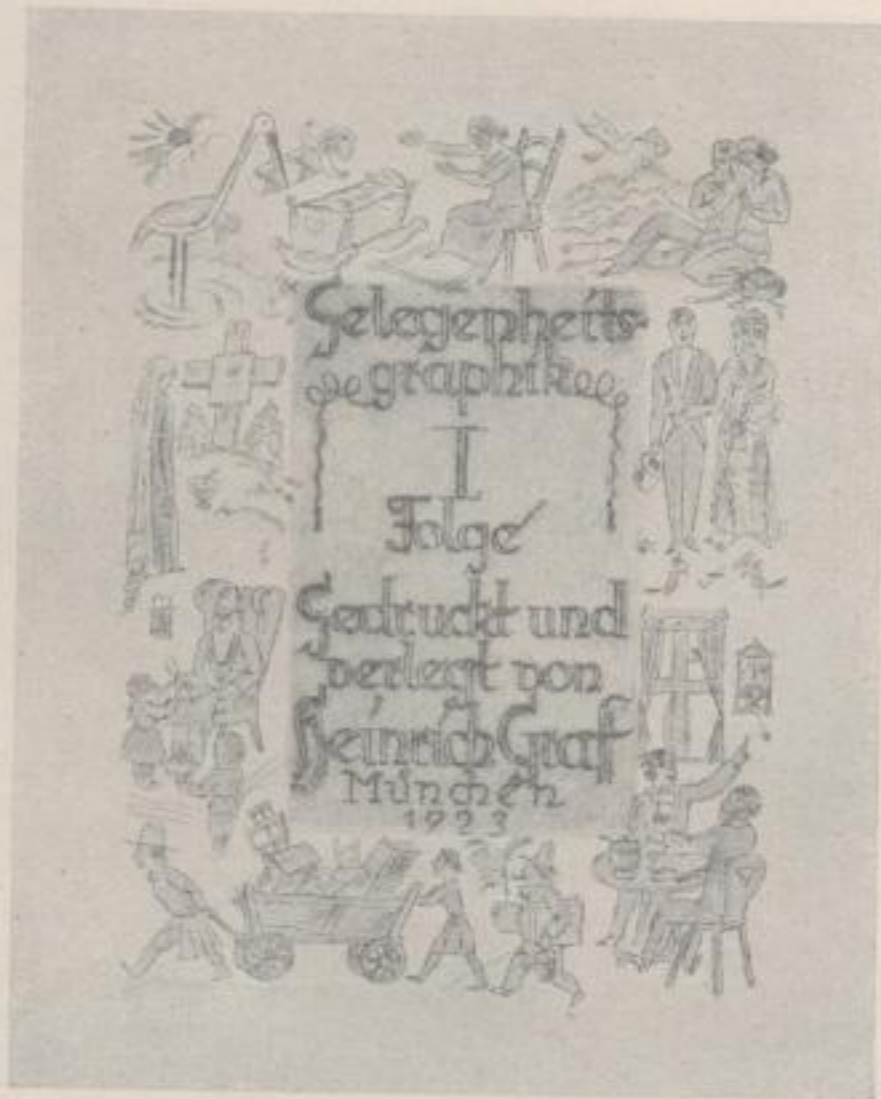 Gelegenheits-
graphik
I
Folge
Gedruckt und
verlegt von
Heinrich Graf
München
1923